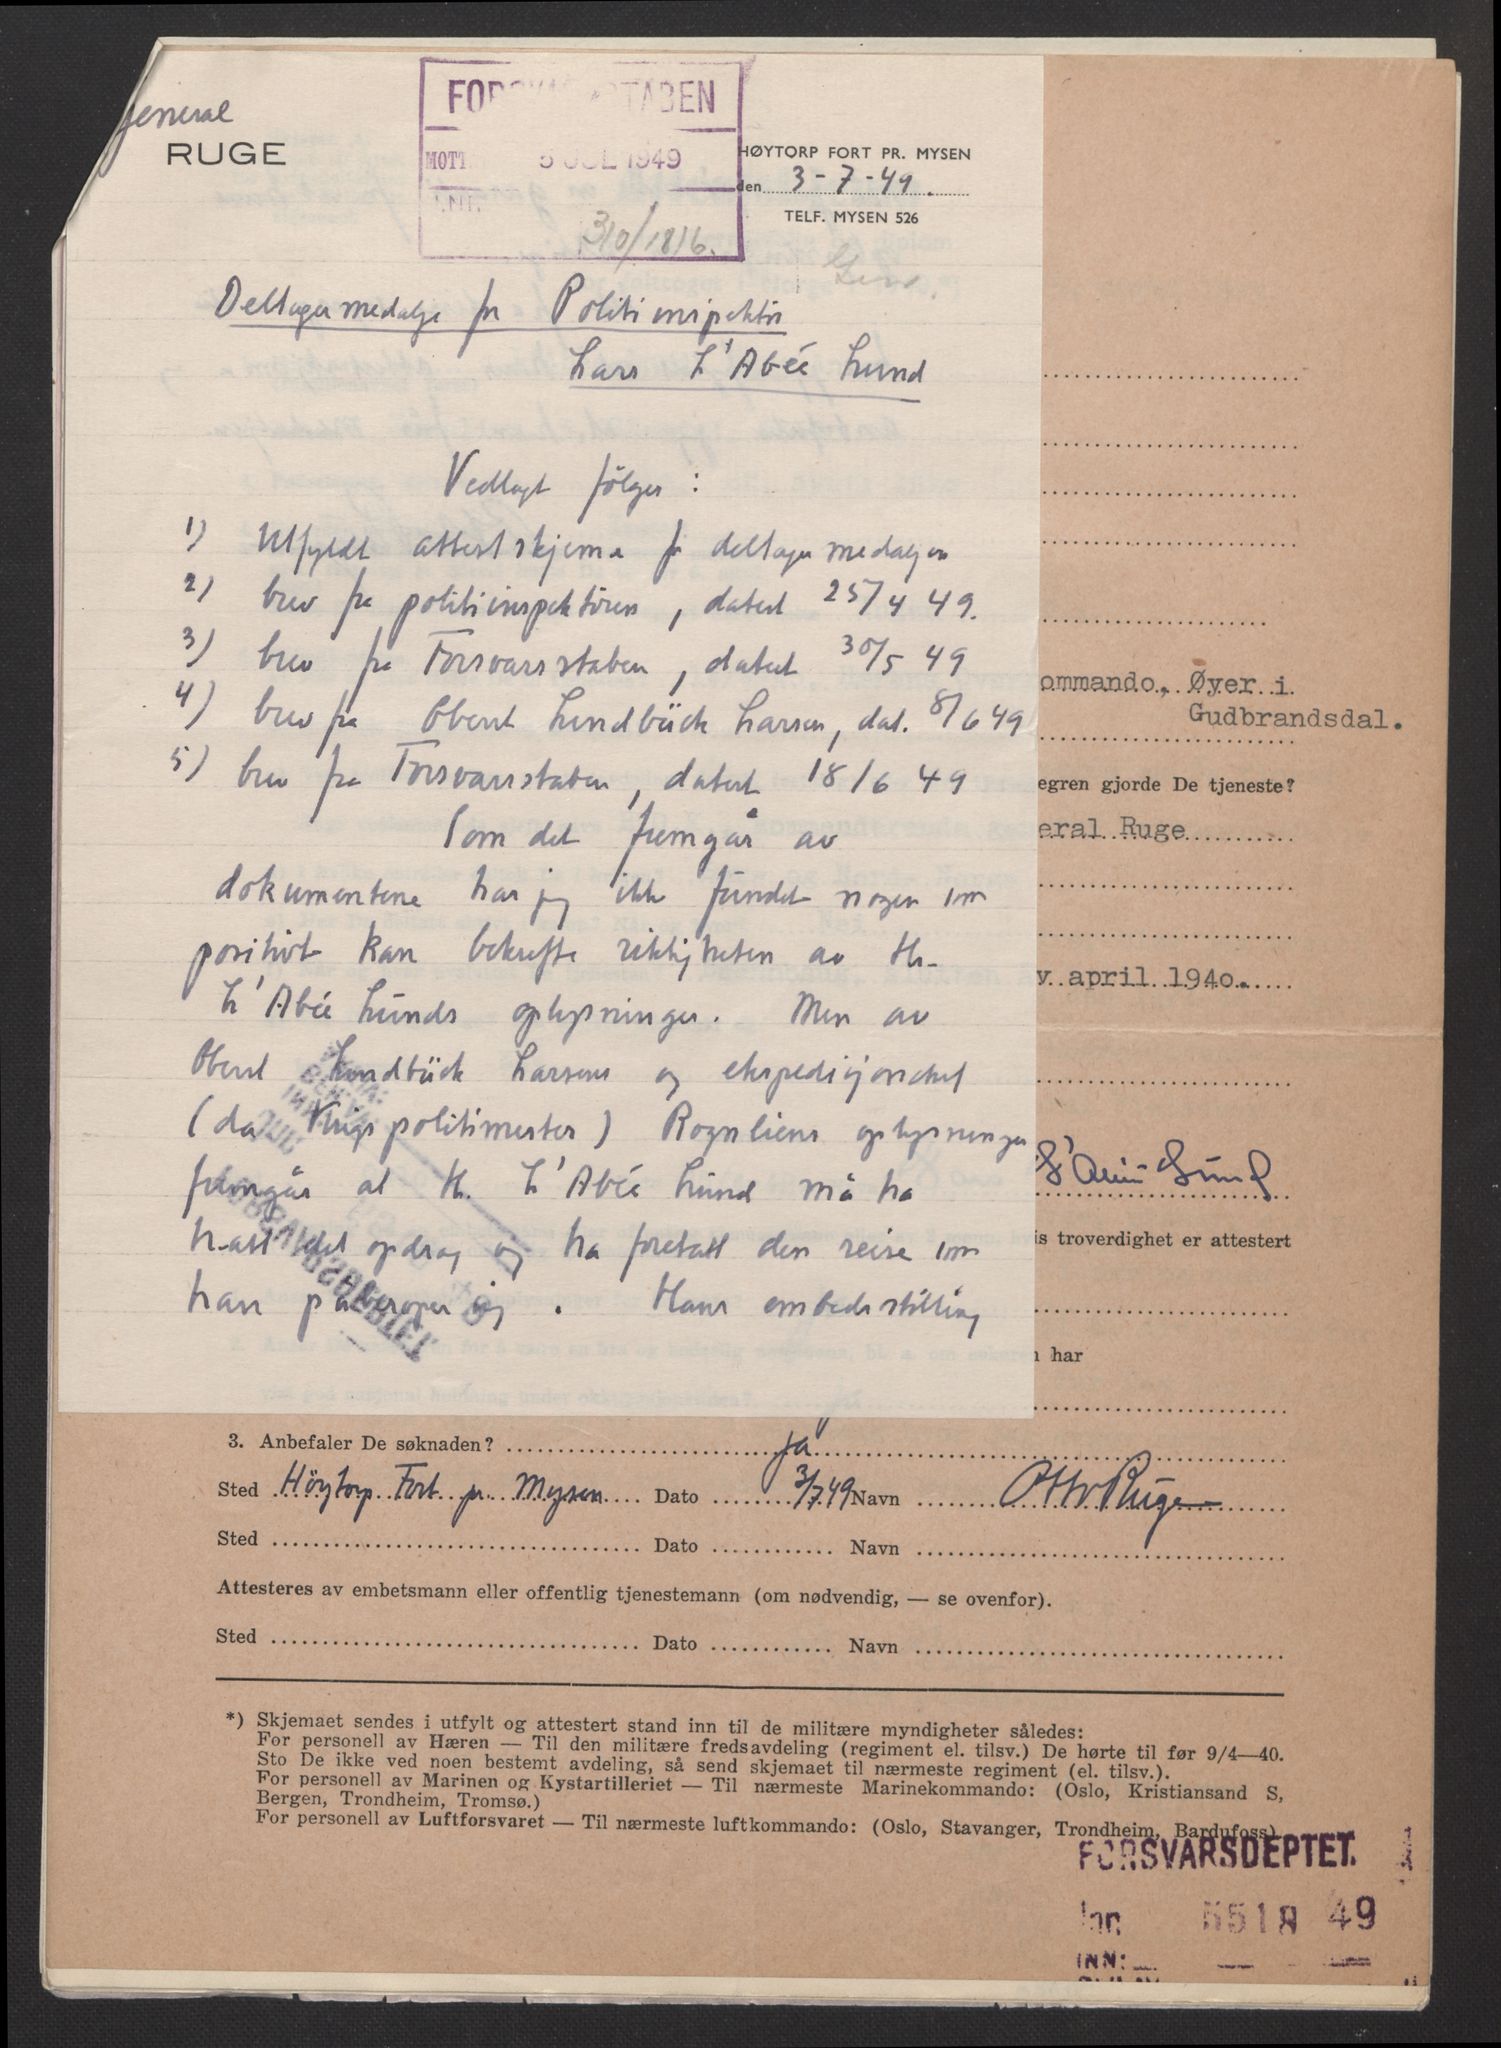 General
RUGE
FORSVARSSTABEN
MOTT 5 JUL 1949
J.NR.
310/1816.
HØYTORP FORT PR. MYSEN
den 3-7-49.
TELF. MYSEN 526
Deltagermedalje for Politiinspektør
Lars L'Abée Lund
Vedlagt følger:
1) Utfyldt attestskjema for deltagermedaljen
2) brev fra politiinspektøren, datert 25/4 49.
3) brev fra Forsvarsstaben, datert 30/5 49
4) brev fra Oberst Lundbück Larsen, dat. 8/6 49
5) brev fra Forsvarsstaben, datert 18/6 49
Som det fremgår av
dokumentene har jeg ikke fundet nogen som
positivt kan bekrefte riktigheten av Hr.
L'Abée Lunds oplysninger. Men av
Oberst Lundbück Larsens og ekspedisjonschef
(da Krigspolitimester) Rognliens oplysninger
fremgår at Hr. L'Abée Lund må ha
hatt det opdrag og ha foretatt den reise som
han påberoper sig. Hans embedsstilling
ommando, Øyer i
Gudbrandsdal.
egren gjorde De tjeneste?
eral Ruge
v april 1940.
L'Abée Lund
is troverdighet er attestert
n har
3. Anbefaler De søknaden? ja
Sted Höytorp Fort pr. Mysen Dato 3/7.49 Navn Otto Ruge
Sted Dato Navn
Attesteres av embetsmann eller offentlig tjenestemann (om nødvendig, — se ovenfor).
Sted Dato Navn
*) Skjemaet sendes i utfylt og attestert stand inn til de militære myndigheter således:
For personell av Hæren — Til den militære fredsavdeling (regiment el. tilsv.) De hørte til før 9/4—40.
Sto De ikke ved noen bestemt avdeling, så send skjemaet til nærmeste regiment (el. tilsv.).
For personell av Marinen og Kystartilleriet — Til nærmeste Marinekommando: (Oslo, Kristiansand S,
Bergen, Trondheim, Tromsø.)
For personell av Luftforsvaret — Til nærmeste luftkommando: (Oslo, Stavanger, Trondheim, Bardufoss)
FORSVARSDEPTET.
Inn 5518 49
INN: